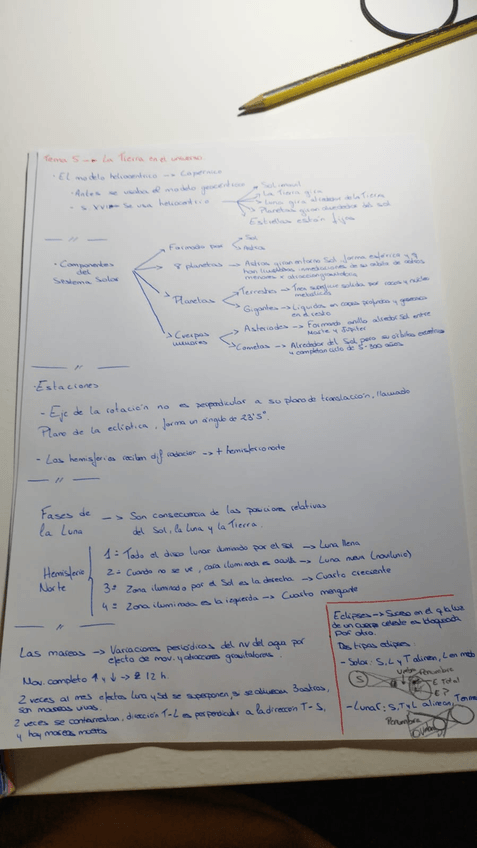 Tema 5 → La Tierra en el universo
· El modelo heliocéntrico → Copérnico
- Antes se usaba el modelo geocéntrico
- s. XVI → Se usa heliocéntrico
Sol inmóvil
La Tierra gira
Luna gira alrededor de la Tierra
Planetas giran alrededor del sol
Estrellas están fijas
· Componentes del Sistema Solar
Formado por
Sol
Astros
8 planetas → Astros giran entorno Sol, forma esférica y q
han limpiado inmediaciones de su órbita de astros
menores x atracción gravitatoria
Planetas
Terrestres → Tras superficie sólida por rocas y núcleo
metálicos
Gigantes → Líquidos en capas profundas y gaseosos
en el resto
Cuerpos menores
Asteroides → Formando anillo alrededor Sol entre
Marte y Júpiter
Cometas → Alrededor del Sol pero su órbita excéntrica
y completan ciclo de 5-300 años
· Estaciones
- Eje de la rotación no es perpendicular a su plano de translación, llamado
Plano de la eclíptica, forma un ángulo de 23'5°
- Los hemisferios reciben dif radiación → + hemisferio norte
Fases de
la Luna
→ Son consecuencia de las posiciones relativas
del Sol, la Luna y la Tierra.
Hemisferio
Norte
1 = Todo el disco lunar iluminado por el sol → Luna llena
2 = Cuando no se ve, cara iluminada es oculta → Luna nueva (novilunio)
3 = Zona iluminada por el Sol es la derecha → Cuarto creciente
4 = Zona iluminada es la izquierda → Cuarto menguante
Las mareas → Variaciones periódicas del nv del agua por
efecto de mov. y atracciones gravitatorias.
Mov. completo ↑ y ↓ → 12 h.
2 veces al mes efectos Luna y Sol se superponen, si se alinean 3 astros,
son mareas vivas.
2 veces se contrarrestan, dirección T-L es perpendicular a la dirección T-S,
y hay mareas muertas
Eclipses → Suceso en el q la luz
de un cuerpo celeste es bloqueada
por otro.
Dos tipos eclipse:
- Solar: S, L y T alinean, L en medio
S
Umbra
Penumbra
E Total
E P
- Lunar: S, T y L alinean, T en me
Penumbra
Umbra